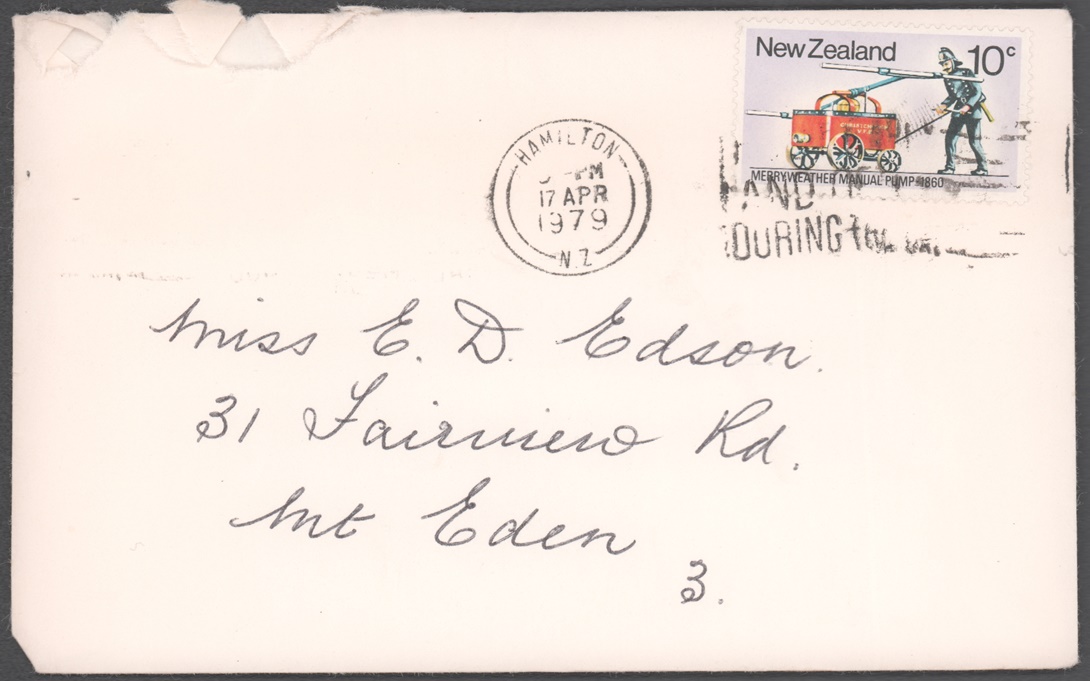 New Zealand 10c
MERRYWEATHER MANUAL PUMP 1860
HAMILTON
PM
17 APR
1979
N.Z
DURING
Miss E. D. Edson.
31 Fairview Rd.
Mt Eden
3.